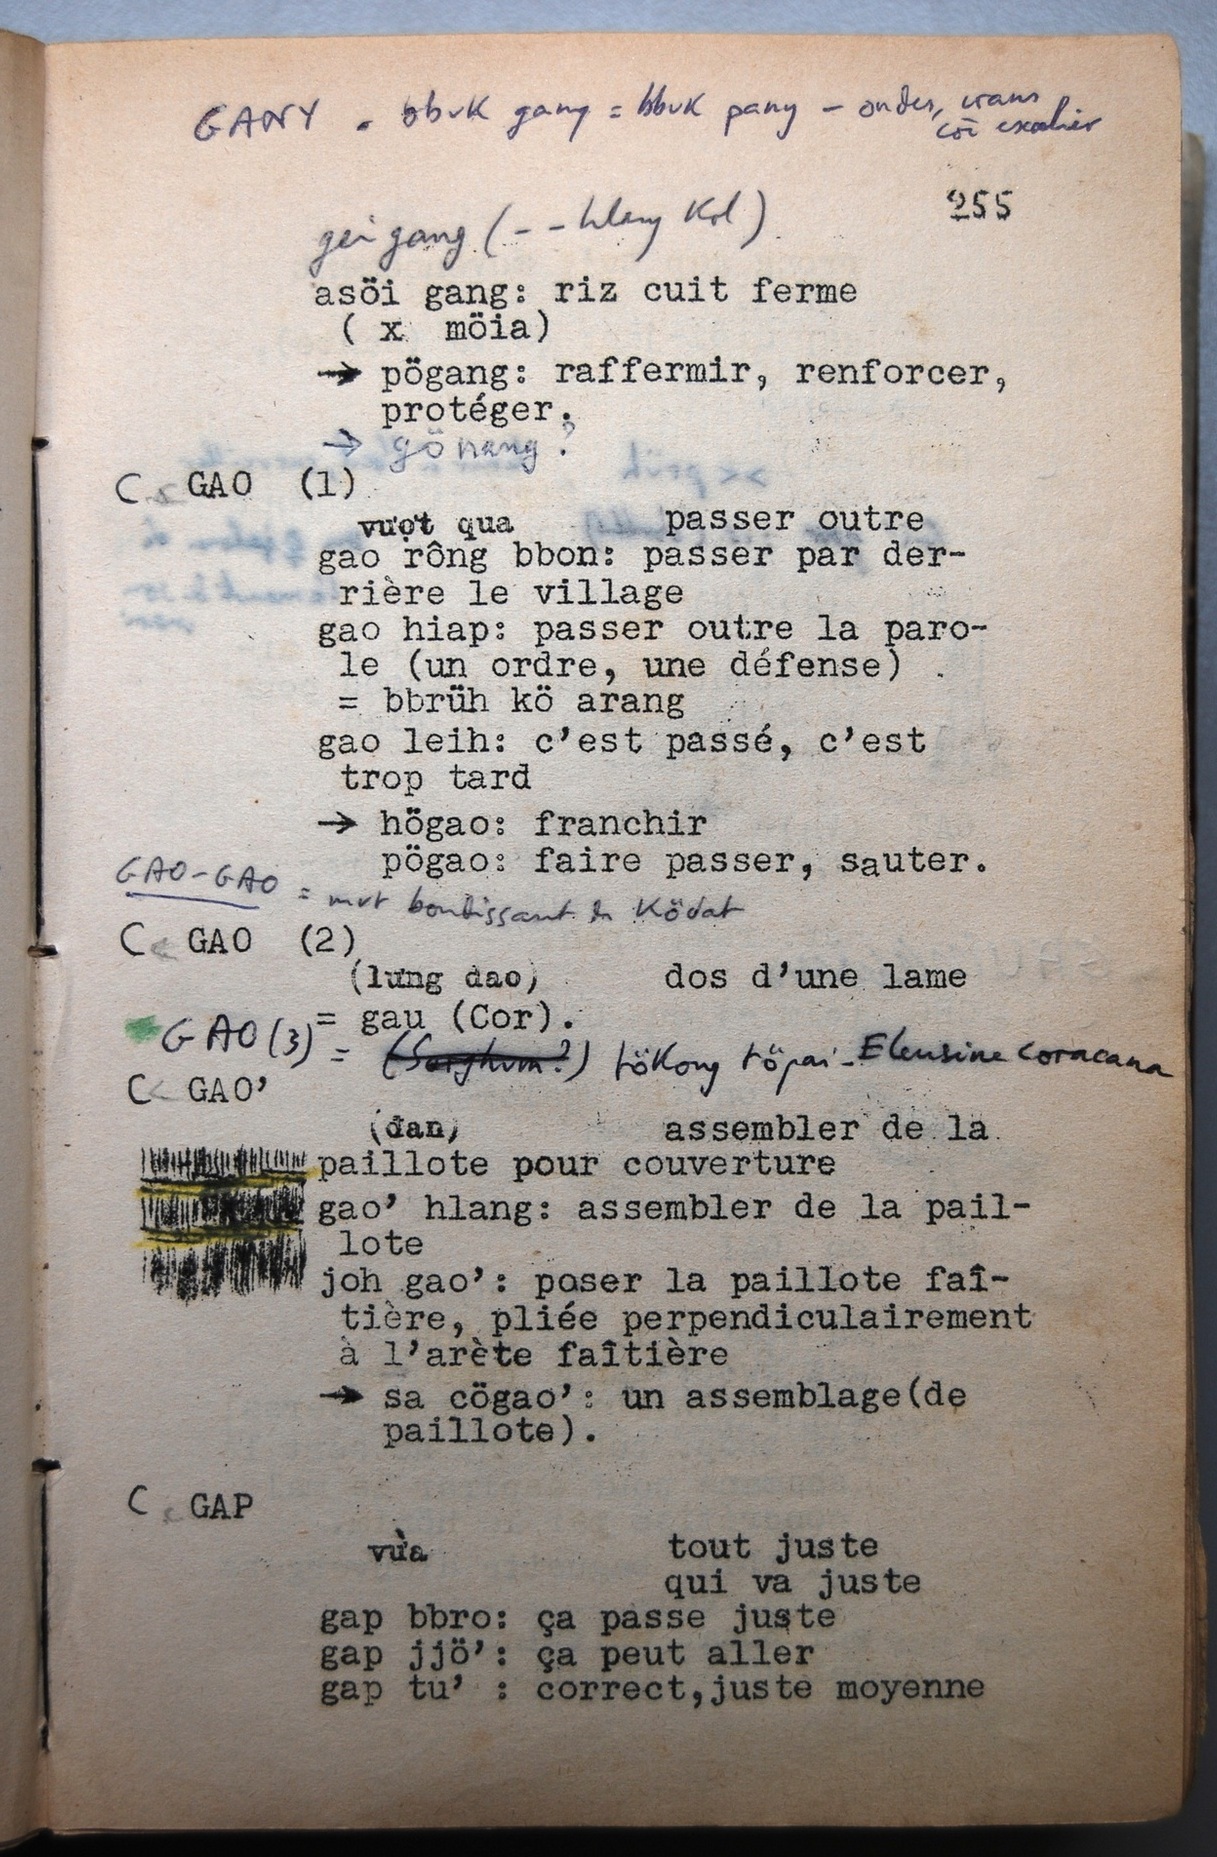 GANY . bbuk gany = bbuk pany - ondes,
255
gei gang ( - - hlang Kol )
asöi gang: riz cuit ferme
( x möia)
→ pögang: raffermir, renforcer,
protéger.
→ gönang ?
C GAO (1)
vượt qua passer outre
gao rông bbon: passer par der-
rière le village
gao hiap: passer outre la paro-
le (un ordre, une défense)
= bbrüh kö arang
gao leih: c'est passé, c'est
trop tard
→ högao: franchir
pögao: faire passer, sauter.
GAO-GAO = mvt bondissant du Ködat
C GAO (2)
(lưng dao) dos d'une lame
= gau (Cor).
GAO (3) = (Sorghum?) tökong töpai - Eleusine coracana
C GAO'
(đan) assembler de la
paillote pour couverture
gao' hlang: assembler de la pail-
lote
joh gao': poser la paillote faî-
tière, pliée perpendiculairement
à l'arète faîtière
→ sa cögao': un assemblage(de
paillote).
C GAP
vừa tout juste
qui va juste
gap bbro: ça passe juste
gap jjö': ça peut aller
gap tu' : correct,juste moyenne